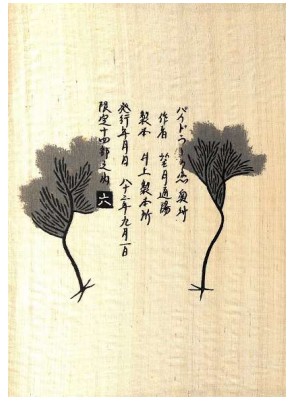 パイドラの恋 奥付
作者 望月通陽
製本 井上製本所
発行年月日 八十三年九月一日
限定十四部之内 六